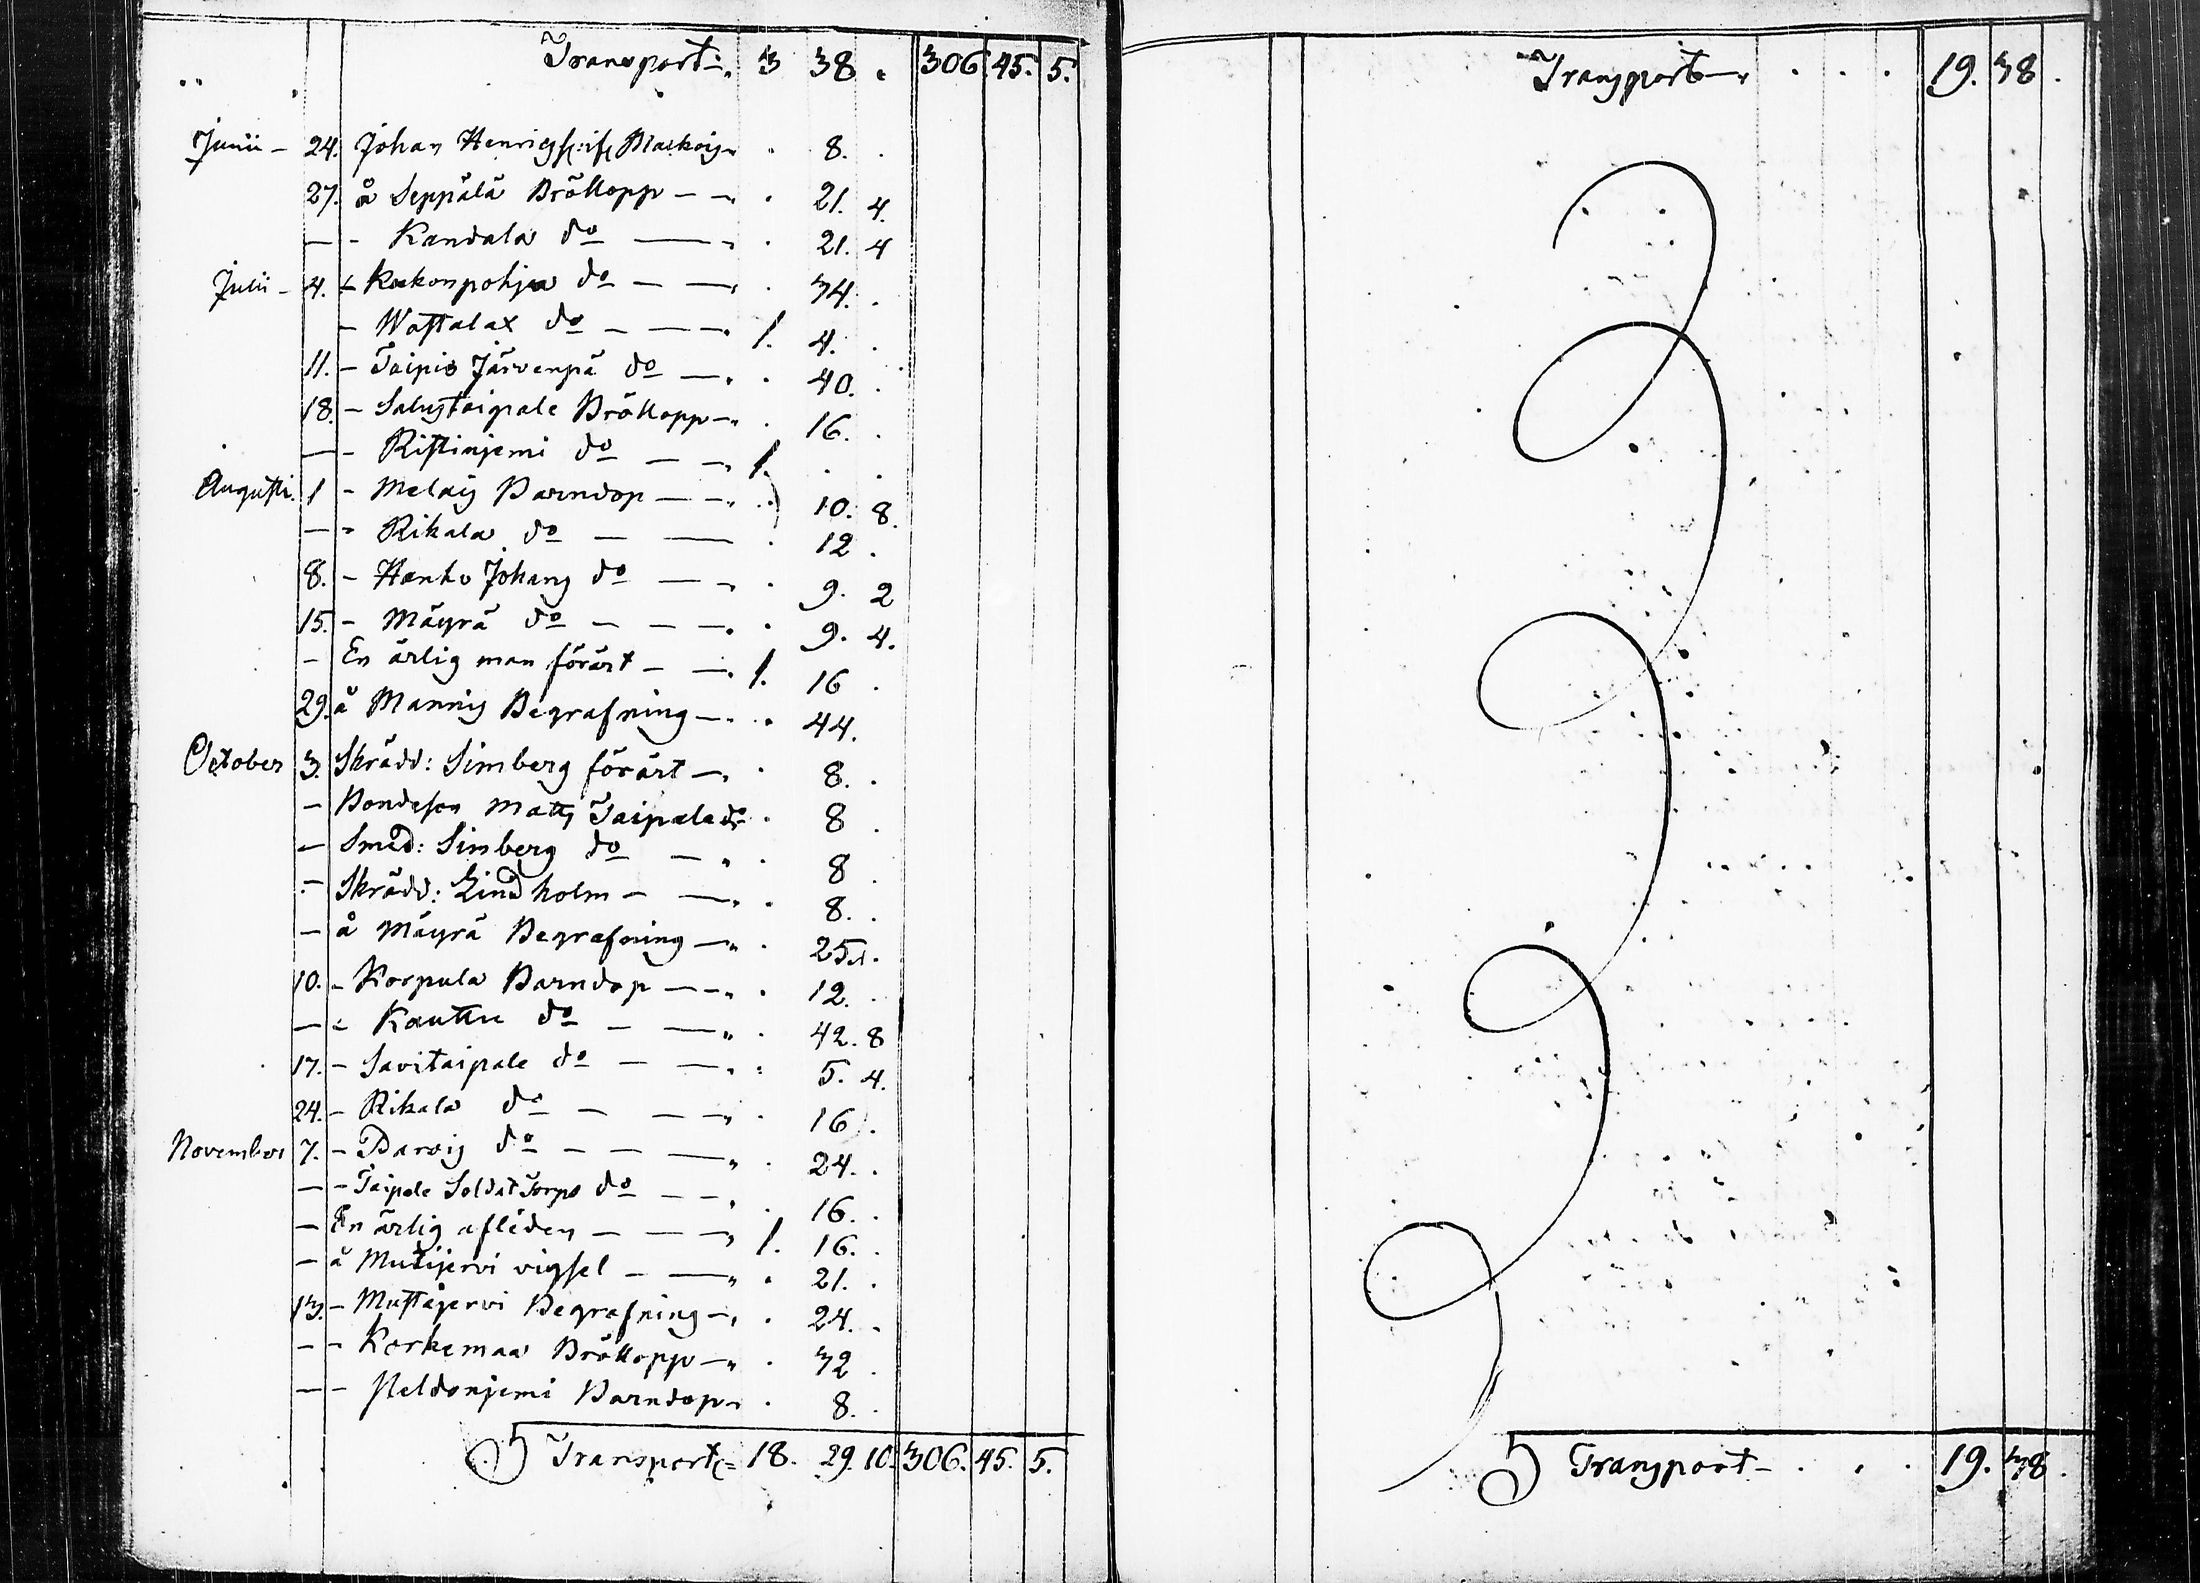 Transport 3 38 . 306 45. 5.
Junii - 24. Johan 8. .
27. å Seppälä Bröllopp - - 21. 4.
- - Kandala do - 21. 4
Julii - 4. - Kakonpohja do - - 34. .
- Wastalax do - - 1. 4. .
11. - Taipio Järvenpä do - 40. .
18. - Salustaipale Bröllopp - 16. .
- - Ristinjemi do - - 1. . .
Augusti. 1 - Melais Barndop - - 10. 8.
- - Rikala do - - 12 .
8. - Hanko Johans do - - 9. 2
15. - Mäyrä do - - - 9. 4.
- En ärlig man förärt - - 1. 16 .
29. å Mannis Begrafning - 44.
October 3. Skrädd: Simberg förärt - 8. .
- Bondeson Matts Taipale do 8 .
- Smed: Simberg do - 8 .
- Skrädd: Lindholm - - 8. .
- å Mäyrä Begrafning - 25. .
10. - Korpula Barndop - - 12. .
- - Kauttu do - - 42. 8
17. - Savitaipale do - - 5. 4.
24. - Rikala do - - - 16 .
November 7. - Barvis do - - - 24. .
- - Taipale Soldat Torp do - - 16. .
- En ärlig afliden - - - 1. 16. .
- å Mutijervi vigsel - - 21. .
13. - Mustajervi Begrafning - 24. .
- - Korkemaa Bröllopp - 32 .
- - Neldonjemi Barndop 8. .
Transport 18. 29. 10. 306. 45. 5.
Transport - . . . 19. 38 .
Transport - . . . 19. 38 .